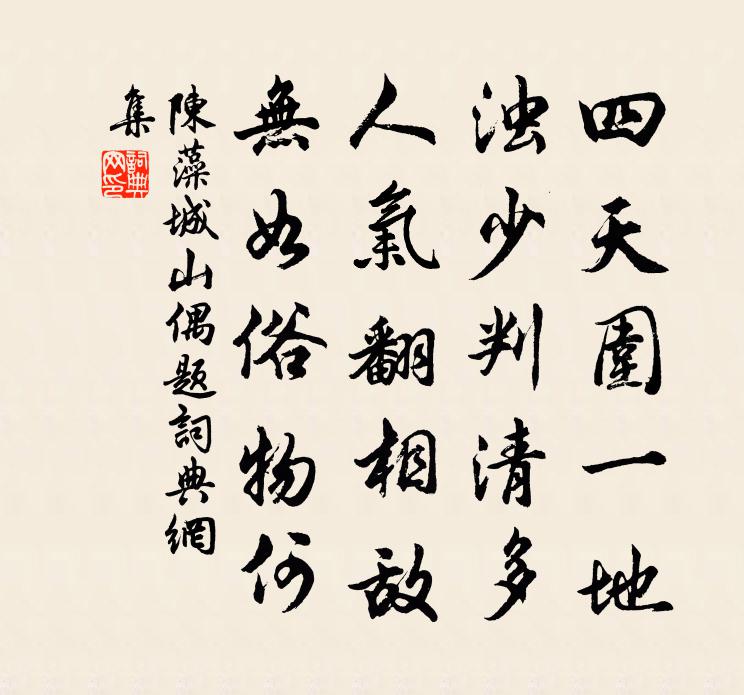 四天圍一地
浊少判清多
人氣翻相敵
無如俗物何
陳藻城山偶題詞典網
集
詞典
网印